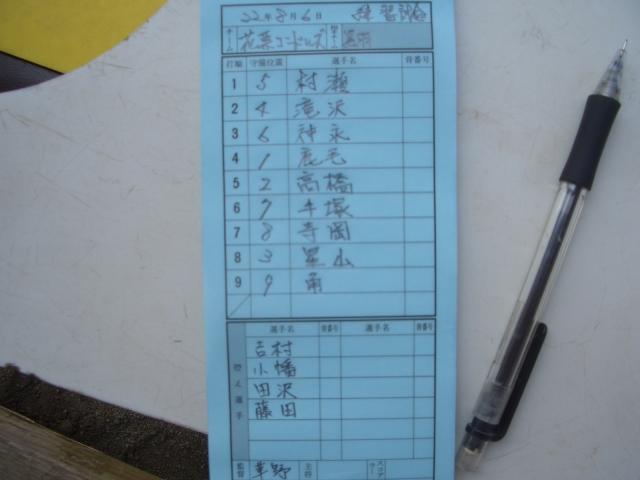 22年8月6日 練習試合
チーム
打順 守備位置 選手名 背番号
1 5 村瀬
2 4 滝沢
3 6 神永
4 1 鹿毛
5 2 高橋
6 7 手塚
7 8 寺岡
8 3 星山
9 9
選手名 背番号 選手名 背番号
控え選手
吉村
小幡
田沢
藤田
監督 草野 主将 スコアラー